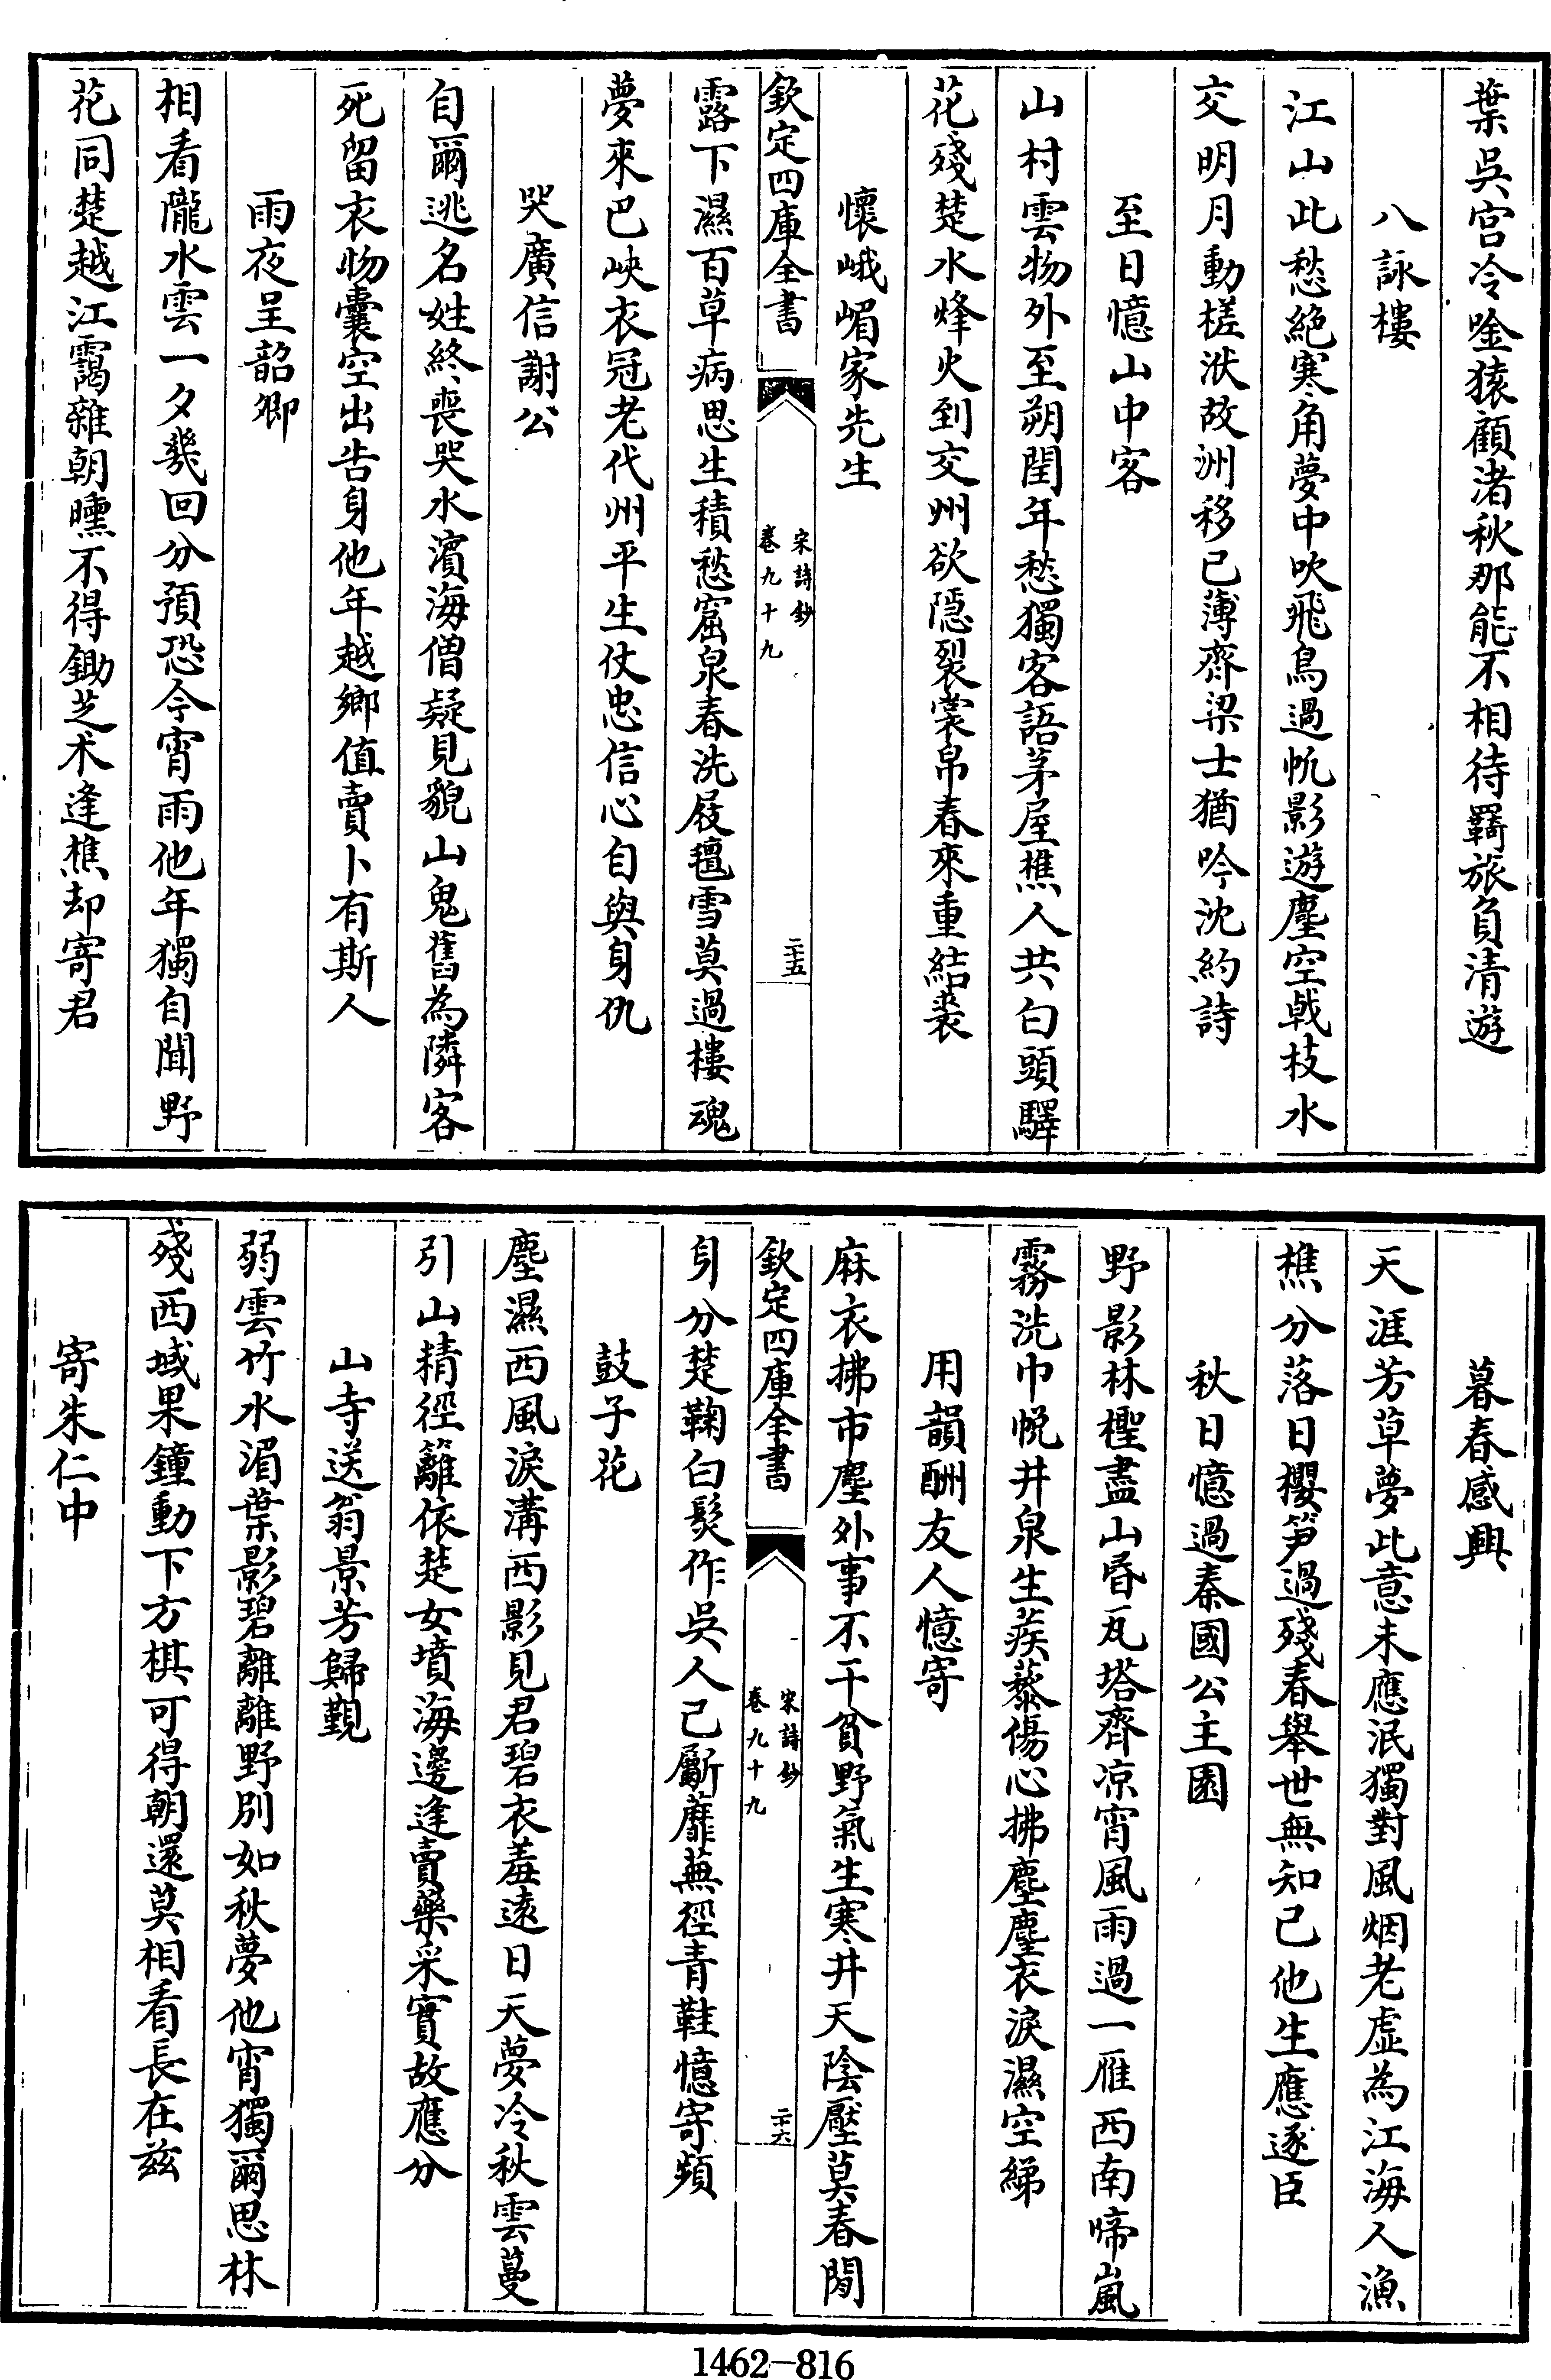 葉吳宫冷唫猿顧渚秋那能不相待羇旅負清遊
八詠樓
江山此愁絶寒角夢中吹飛鳥過帆影遊塵空戟枝水
交明月動槎洑故洲移已薄齊梁士猶吟沈約詩
至日憶山中客
山村雲物外至朔閏年愁獨客語茅屋樵人共白頭驛
花殘楚水烽火到交州欲隠裂裳帛春來重結裘
懷峨嵋家先生
欽定四庫全書
宋詩鈔
卷九十九
二十五
露下濕百草病思生積愁窟泉春洗屐氊雪莫過樓魂
夢來巴峽衣冠老代州平生仗忠信心自與身仇
哭廣信謝公
自爾逃名姓終喪哭水濱海僧疑見貌山鬼舊為隣客
死留衣物囊空出告身他年越鄉值賣卜有斯人
雨夜呈韶卿
相看隴水雲一夕幾回分預恐今宵雨他年獨自聞野
花同楚越江靄雜朝曛不得鋤芝术逢樵却寄君
暮春感興
天涯芳草夢此意未應泯獨對風烟老虚為江海人漁
樵分落日櫻笋過殘春舉世無知己他生應逐臣
秋日憶過秦國公主園
野影林檉盡山昏瓦塔齊凉宵風雨過一雁西南啼嵐
霧洗巾帨井泉生蒺藜傷心拂塵塵衣淚濕空綈
用韻酬友人憶寄
麻衣拂市塵外事不干貧野氣生寒井天陰壓莫春閒
欽定四庫全書
宋詩鈔
卷九十九
二十六
身分楚鞠白髮作吳人已斸蘼蕪徑青鞋憶寄頻
鼓子花
塵濕西風淚溝西影見君碧衣羞遠日天夢冷秋雲蔓
引山精徑籬依楚女墳海邊逢賣藥采實故應分
山寺送翁景芳歸覲
弱雲竹水湄葉影碧離離野別如秋夢他宵獨爾思林
殘西域果鐘動下方棋可得朝還莫相看長在兹
寄朱仁中
1462—816